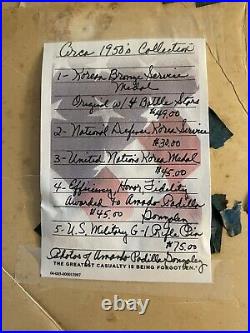 Circa 1950's Collection
1 - Korean Bronze Service
Medal
Original w/4 Battle Stars
$49.00
2 - National Defense Korea Service
$30.00
3 - United Nations Korea Medal
$45.00
4 - Efficiency, Honor, Fidelity
Awarded To Amado Padilla
$45.00 Gonzalez
5 - U.S. Military G-1 Rifle Pin
$75.00
Photos of Amado Padilla Gonzalez
THE GREATEST CASUALTY IS BEING FORGOTTEN.